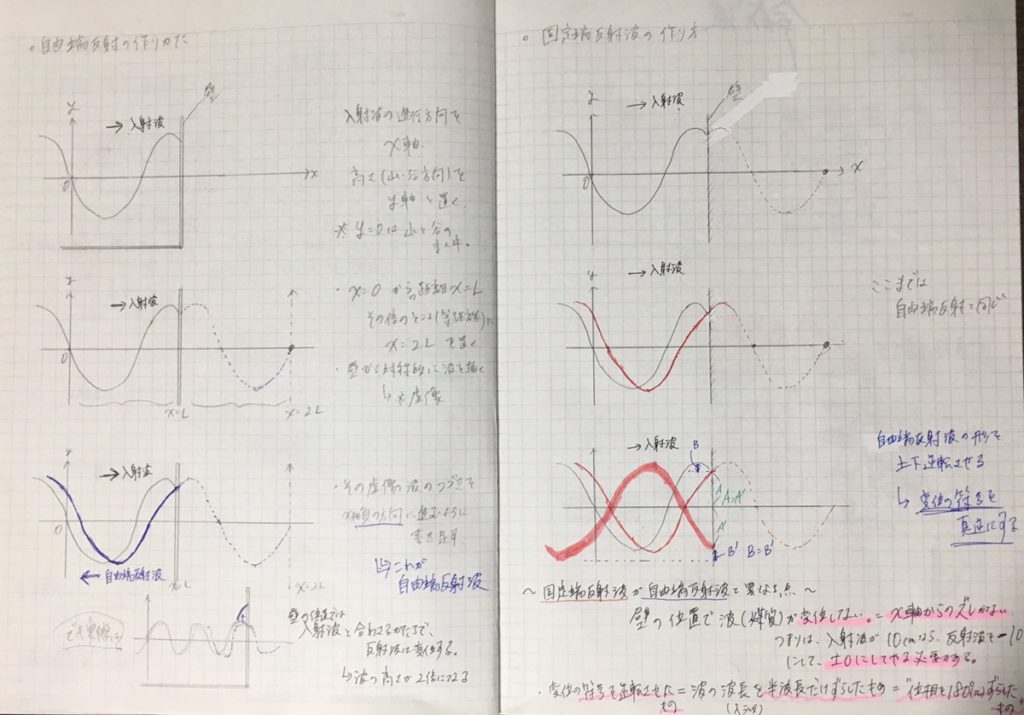 。自由端反射の作りかた
壁
y
→入射波
0
x
入射波の進行方向を
x軸
高さ(山・谷方向)を
y軸と置く
※ y=0は山と谷の
まん中。
y
→入射波
0
x=L
x=2L
・x=0からの距離x=L
その倍のところ(等距離)に
x=2Lを置く
・壁から対称的に波を描く
↳※虚像
y
→入射波
0
← 自由端反射波
x=L
x=2L
・その虚像の波のつづきを
↳これが
自由端反射波
で、実際は
壁の位置では
入射波と合わさるかたちで、
反射波は変位する。
↳波の高さが2倍になる
。固定端反射波の作り方
壁
y
→入射波
0
x
y
→入射波
ここまでは
自由端反射と同じ
→入射波
B
A
A=A'
A'
B'
B=B'
自由端反射波の形を
上下逆転させる
↳ 変位の符号を
真逆にする
～固定端反射波が自由端反射波と異なる点～
壁の位置で波(媒質)が変位しない。=x軸からのズレがない
つまりは、入射波が10cmなら、反射波を-10
にして、±0にしてやる必要がある。
・変位の符号を逆転させたもの=波の波長を半波長だけずらしたもの=位相を180°ずらしたもの